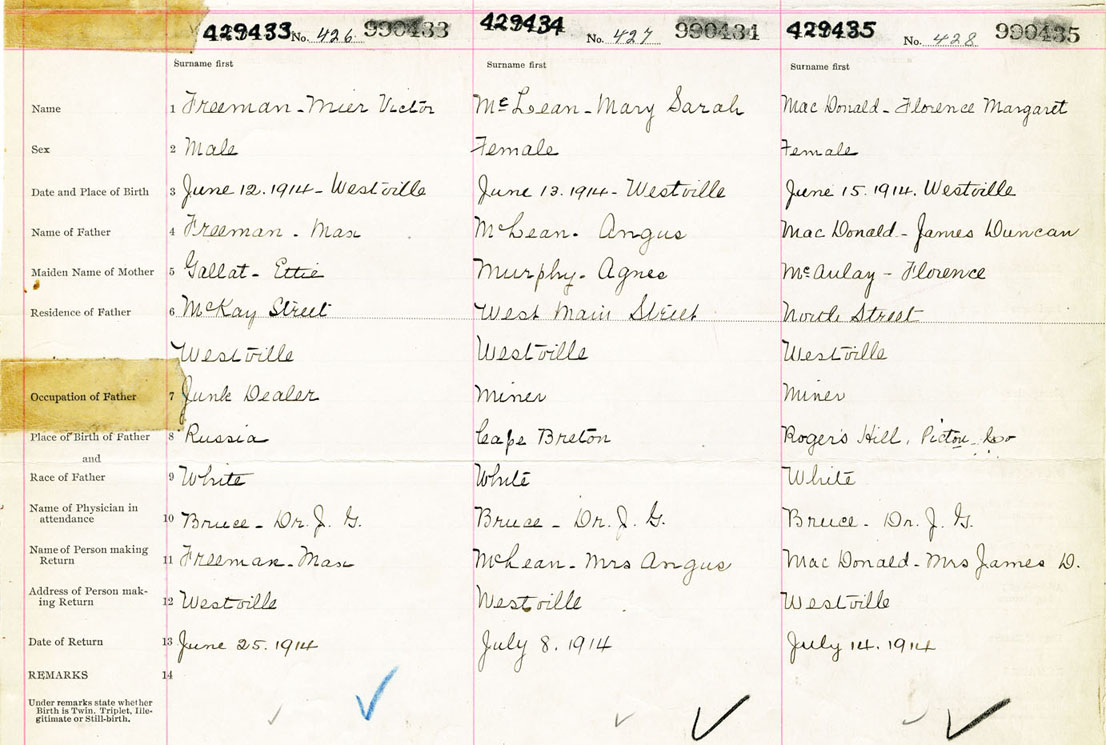 429433 No. 426 990433 429434 No. 427 990434 429435 No. 428 990435
Surname first Surname first Surname first
Name 1 Freeman - Mier Victor McLean - Mary Sarah Mac Donald - Florence Margaret
Sex 2 Male Female Female
Date and Place of Birth 3 June 12. 1914 - Westville June 13. 1914 - Westville June 15. 1914. Westville
Name of Father 4 Freeman - Max McLean - Angus Mac Donald - James Duncan
Maiden Name of Mother 5 Gallat - Ettie Murphy - Agnes McAulay - Florence
Residence of Father 6 McKay Street West Main Street North Street
Westville Westville Westville
Occupation of Father 7 Junk Dealer Miner Miner
Place of Birth of Father 8 Russia Cape Breton Rogers Hill, Pictou Co
and
Race of Father 9 White White White
Name of Physician in
attendance 10 Bruce - Dr. J. G. Bruce - Dr. J. G. Bruce - Dr. J. G.
Name of Person making
Return 11 Freeman - Max McLean - Mrs Angus Mac Donald - Mrs James D.
Address of Person mak-
ing Return 12 Westville Westville Westville
Date of Return 13 June 25. 1914 July 8. 1914 July 14. 1914
REMARKS 14
Under remarks state whether
Birth is Twin. Triplet, Ille-
gitimate or Still-birth.